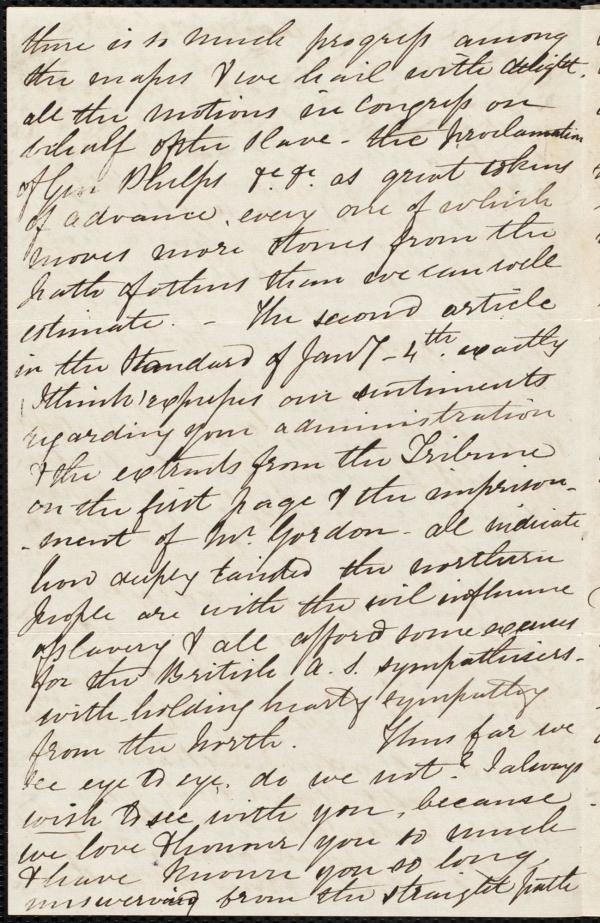 there is so much progress among
the mapes & we hail with delight
all the motions in Congress on
behalf of the slave - the proclamation
of Gen Phelps &c &c. as great tokens
of advance, every one of which
moves more stones from the
path of others than we can well
estimate. - The second article
in the Standard of Jany - 4th. exactly
(I think) expresses our sentiments
regarding your administration
& the extracts from the Tribune
on the first page & the imprison-
-ment of Mr. Gordon - all indicate
how deeply tainted the northern
people are with the evil influence
of slavery & all afford some excuses
for the British A. S. sympathisers -
with-holding hearty sympathy
from the North. Thus far we
see eye to eye. do we not? I always
wish to see with you, because
we love & honour you so much
& have known you so long
unswerving from the straight path